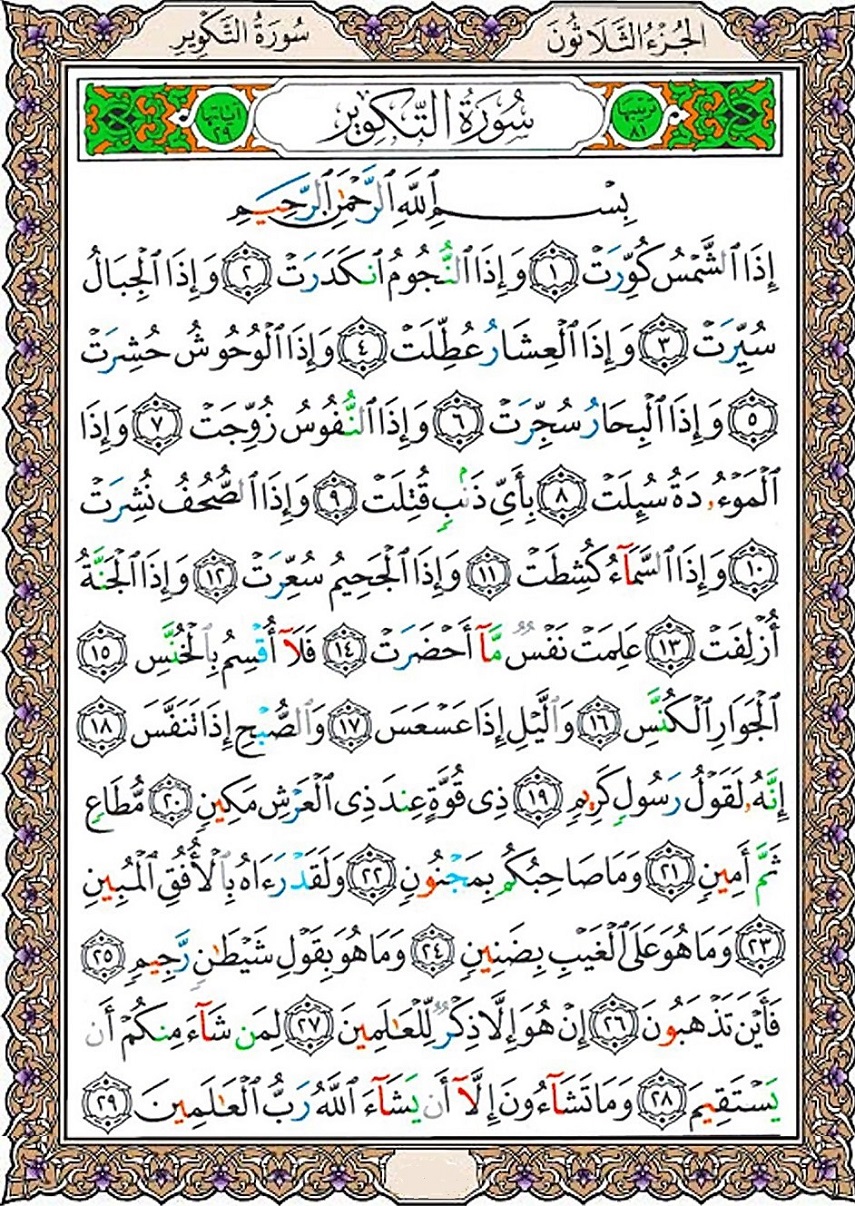 الجُزْءُ الثَّلَاثُونَ سُورَةُ التَّكْوِيرِ
ترتيبها ٨١ سُورَةُ التَّكْوِيرِ آياتها ٢٩
بِسْمِ ٱللَّهِ ٱلرَّحْمَٰنِ ٱلرَّحِيمِ
إِذَا ٱلشَّمْسُ كُوِّرَتْ ١ وَإِذَا ٱلنُّجُومُ ٱنكَدَرَتْ ٢ وَإِذَا ٱلْجِبَالُ
سُيِّرَتْ ٣ وَإِذَا ٱلْعِشَارُ عُطِّلَتْ ٤ وَإِذَا ٱلْوُحُوشُ حُشِرَتْ
٥ وَإِذَا ٱلْبِحَارُ سُجِّرَتْ ٦ وَإِذَا ٱلنُّفُوسُ زُوِّجَتْ ٧ وَإِذَا
ٱلْمَوْءُۥدَةُ سُئِلَتْ ٨ بِأَىِّ ذَنۢبٍ قُتِلَتْ ٩ وَإِذَا ٱلصُّحُفُ نُشِرَتْ
١٠ وَإِذَا ٱلسَّمَآءُ كُشِطَتْ ١١ وَإِذَا ٱلْجَحِيمُ سُعِّرَتْ ١٢ وَإِذَا ٱلْجَنَّةُ
أُزْلِفَتْ ١٣ عَلِمَتْ نَفْسٌ مَّآ أَحْضَرَتْ ١٤ فَلَآ أُقْسِمُ بِٱلْخُنَّسِ ١٥
ٱلْجَوَارِ ٱلْكُنَّسِ ١٦ وَٱلَّيْلِ إِذَا عَسْعَسَ ١٧ وَٱلصُّبْحِ إِذَا تَنَفَّسَ ١٨
إِنَّهُۥ لَقَوْلُ رَسُولٍ كَرِيمٍ ١٩ ذِى قُوَّةٍ عِندَ ذِى ٱلْعَرْشِ مَكِينٍ ٢٠ مُّطَاعٍ
ثَمَّ أَمِينٍ ٢١ وَمَا صَاحِبُكُم بِمَجْنُونٍ ٢٢ وَلَقَدْ رَءَاهُ بِٱلْأُفُقِ ٱلْمُبِينِ
٢٣ وَمَا هُوَ عَلَى ٱلْغَيْبِ بِضَنِينٍ ٢٤ وَمَا هُوَ بِقَوْلِ شَيْطَٰنٍ رَّجِيمٍ ٢٥
فَأَيْنَ تَذْهَبُونَ ٢٦ إِنْ هُوَ إِلَّا ذِكْرٌ لِّلْعَٰلَمِينَ ٢٧ لِمَن شَآءَ مِنكُمْ أَن
يَسْتَقِيمَ ٢٨ وَمَا تَشَآءُونَ إِلَّآ أَن يَشَآءَ ٱللَّهُ رَبُّ ٱلْعَٰلَمِينَ ٢٩